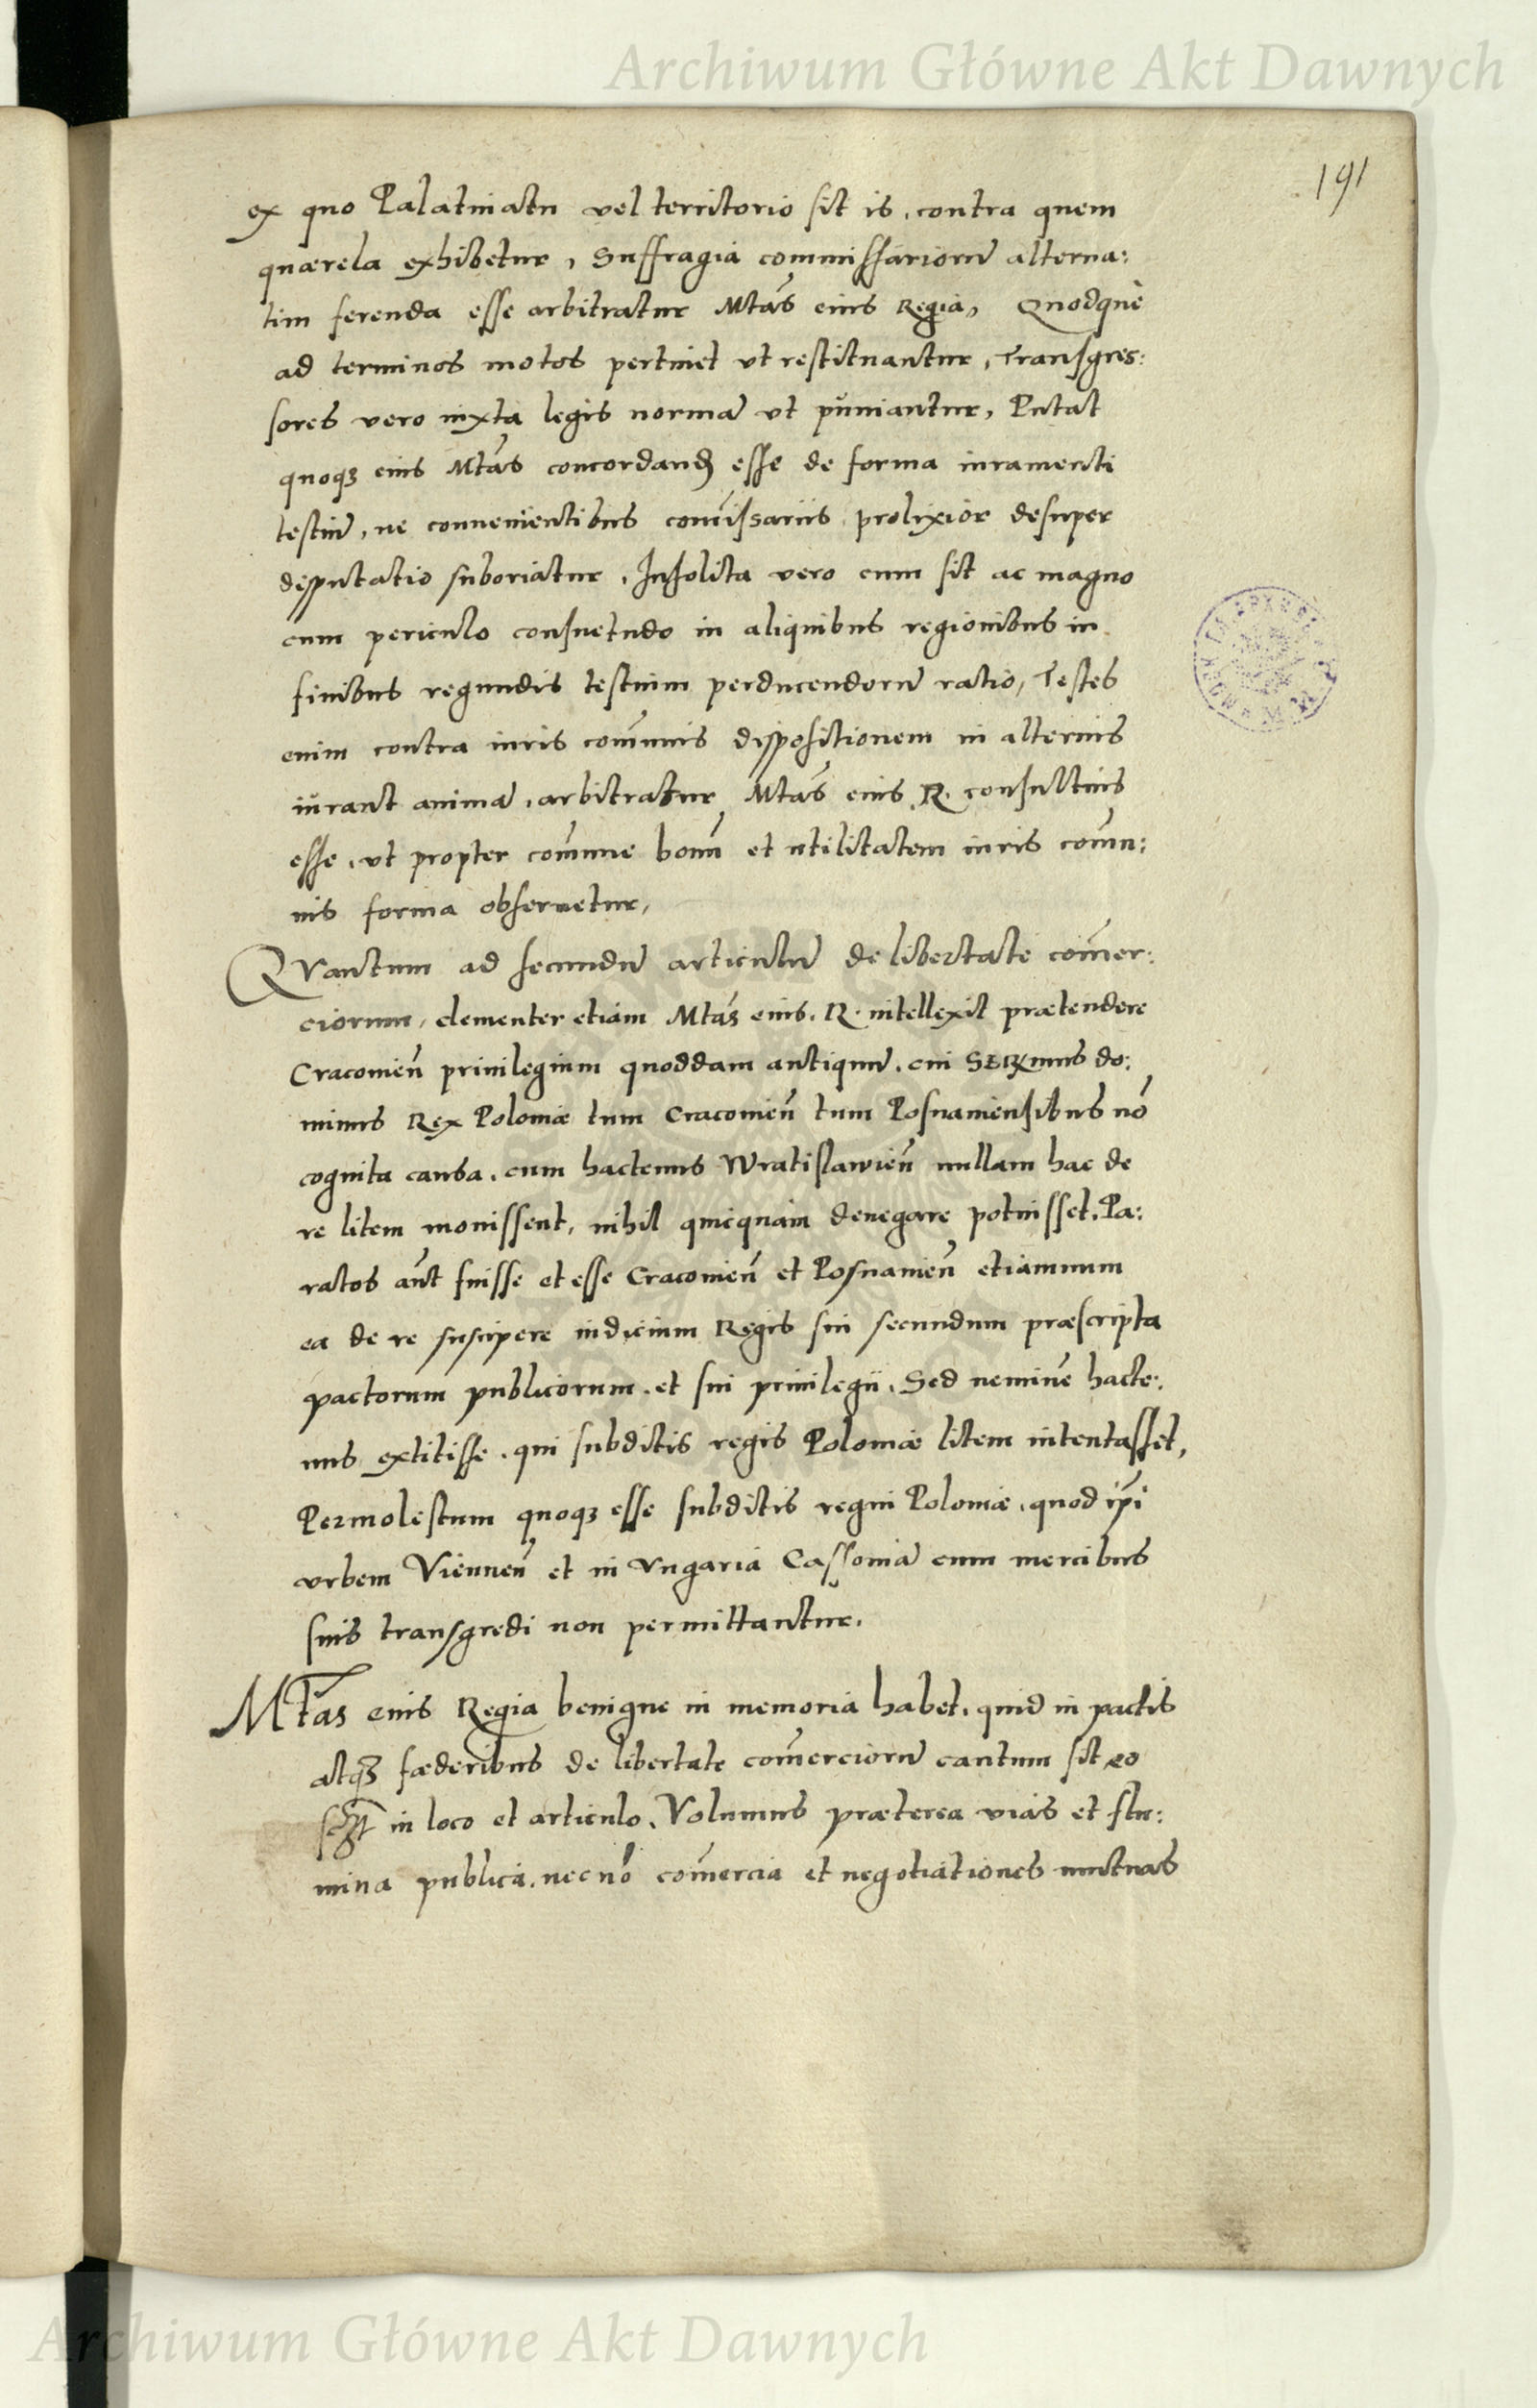 Archiwum Główne Akt Dawnych
191
ex quo Palatinatu vel territorio sit is, contra quem
quærela exhibetur, Suffragia commissariorū alterna:
tim ferenda esse arbitratur Mtās eius Regia, Quodquè
ad terminos motos pertinet ut restituantur, Transgres:
sores vero iuxta legis normā ut pŭniantur, Putat
quoqȝ eius Mtās concordandȝ esse de forma iuramenti
testiū, ne conuenientibus com̄issariis prolixior desuper
disputatio suboriatur, Insolita vero cum sit ac magno
cum periculo consuetudo in aliquibus regionibus in
finibus regundis testium perducendorū ratio, Testes
enim contra iuris com̄unis dispositionem in alterius
iŭrant animā, arbitratur Mtās eius R. consultius
esse, ut propter com̄une bonū et utilitatem iuris com̄u:
nis forma obseruetur,
QVantum ad secundū articulū de libertate com̄er:
ciorum, clementer etiam Mtās eius. R. intellexit prætendere
Cracouien̄ priuilegium quoddam antiquū, cui SERmus do:
minus Rex Poloniæ tum Cracouien̄ tum Posnaniensibus nō
cognita causa, cum hactenus Wratislawien̄ nullam hac de
re litem mouissent, nihil quicquam denegare potuisset, Pa:
ratos aūt fuisse et esse Cracouien̄ et Posnanien̄ etiamnum
ea de re suscipere iudicium Regis sui secundum præscripta
pactorum publicorum, et sui priuilegii, Sed neminē hacte:
nus extitisse, qui subditis regis Poloniæ litem intentasset,
Permolestum quoqȝ esse subditis regni Poloniæ, quod ip̄i
urbem Viennen̄ et in Vngaria Cassouiā cum mercibus
suis transgredi non permittantŭr.
Mtās eius Regia benigne in memoria habet, quid in pactis
atqȝ fæderibus de libertate com̄erciorū cautum sit eo
in loco et articulo, Volumus præterea vias et flu:
mina publica, nec nō com̄ercia et negotiationes mutuas
Archiwum Główne Akt Dawnych